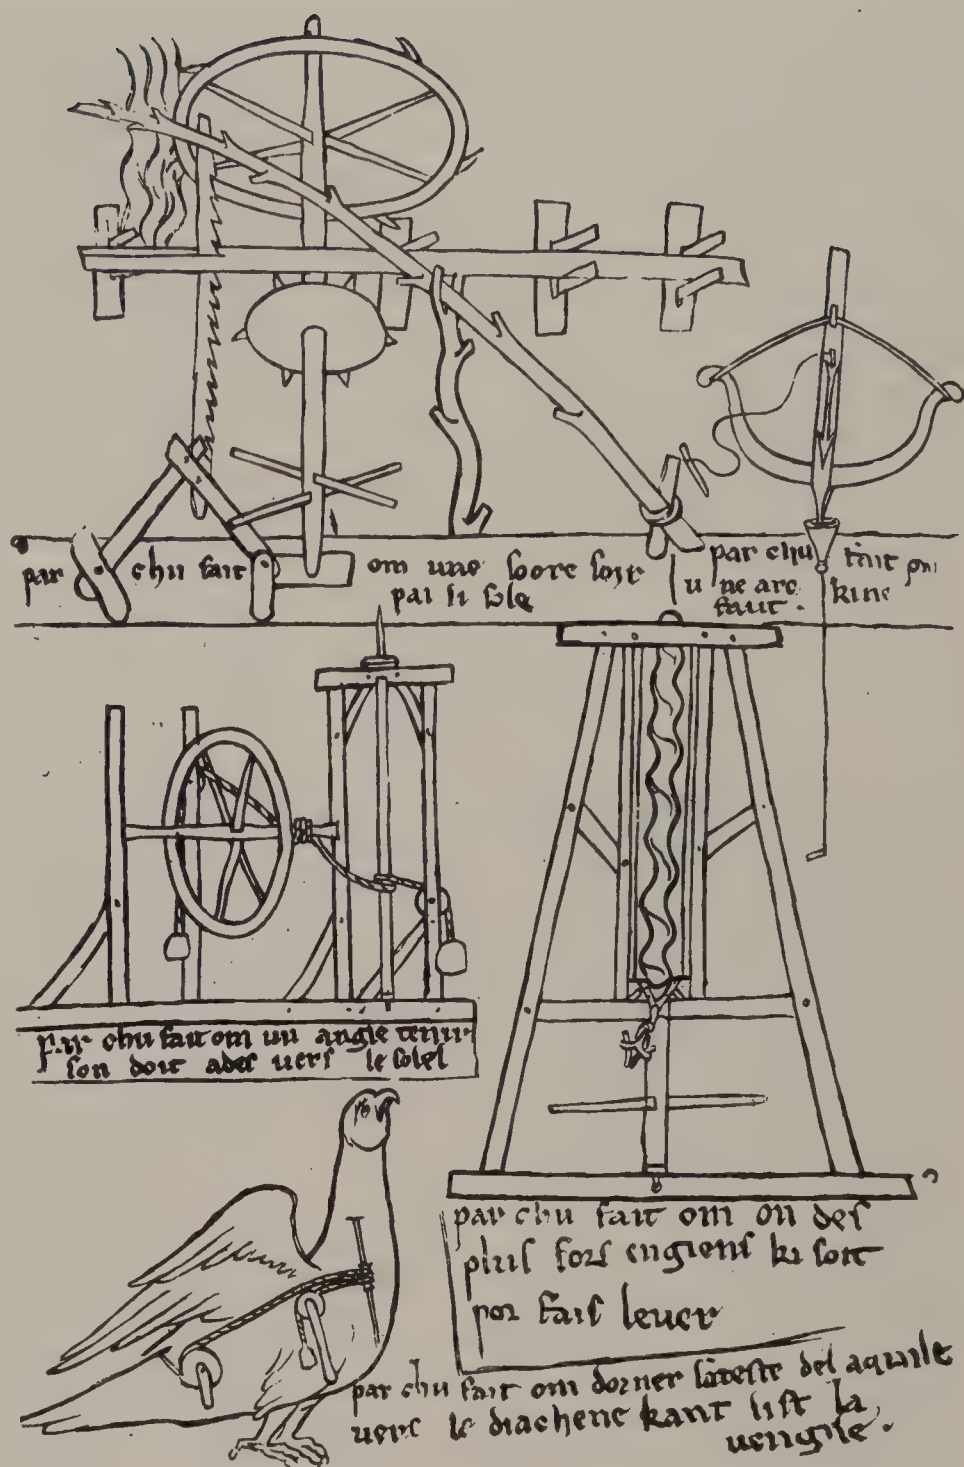 par chu fait om une soore soir
par li sole
par chu fait om
u ne arc kine
faut.
par chu fait om un angle tenir
son doit ades uers le solel
par chu fait om on des
plus fors engiens ki soit
por fais leuer
par chu fait om dorner lateste del aquile
uers le diachene kant list la
uengile.